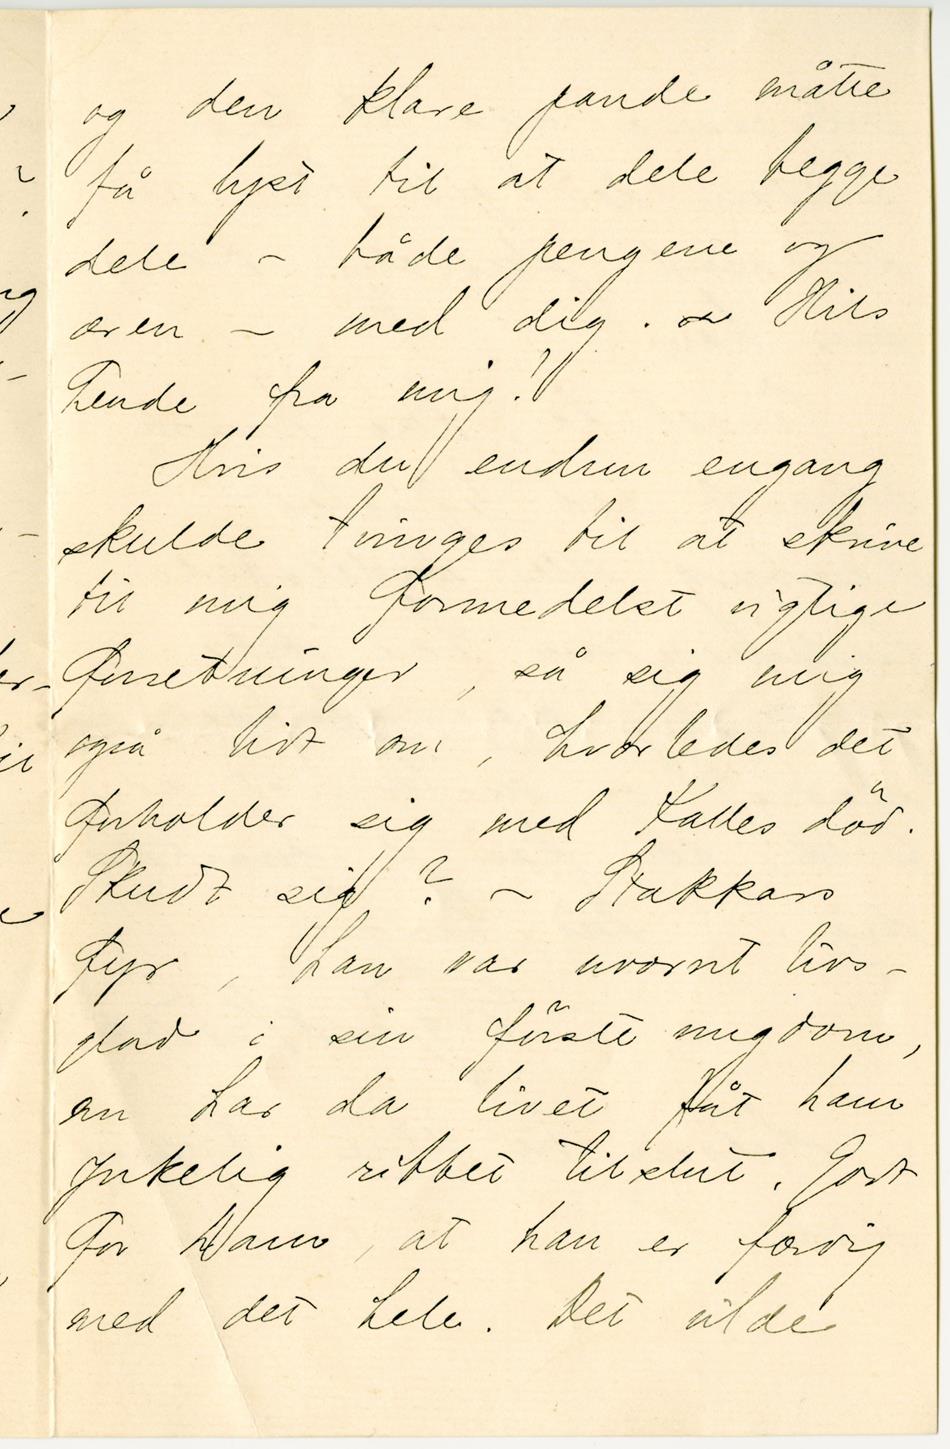 og den klare pande måtte
få lyst til at dele begge
dele – både pengene og
æren – med dig. – Hils
hende fra mig!
Hvis du endnu engang
skulde tvinges til at skrive
til mig formedelst vigtige
forretninger, så sig mig
også lidt om, hvorledes det
forholder sig med Kalles död.
Skudt sig? – Stakkars
fyr, han var uvornt livs-
glad i sin förste ungdom,
nu har da livet fåt ham
ynkelig ribbet tilslut. Godt
for ham, at han er færdig
med det hele. Det vilde